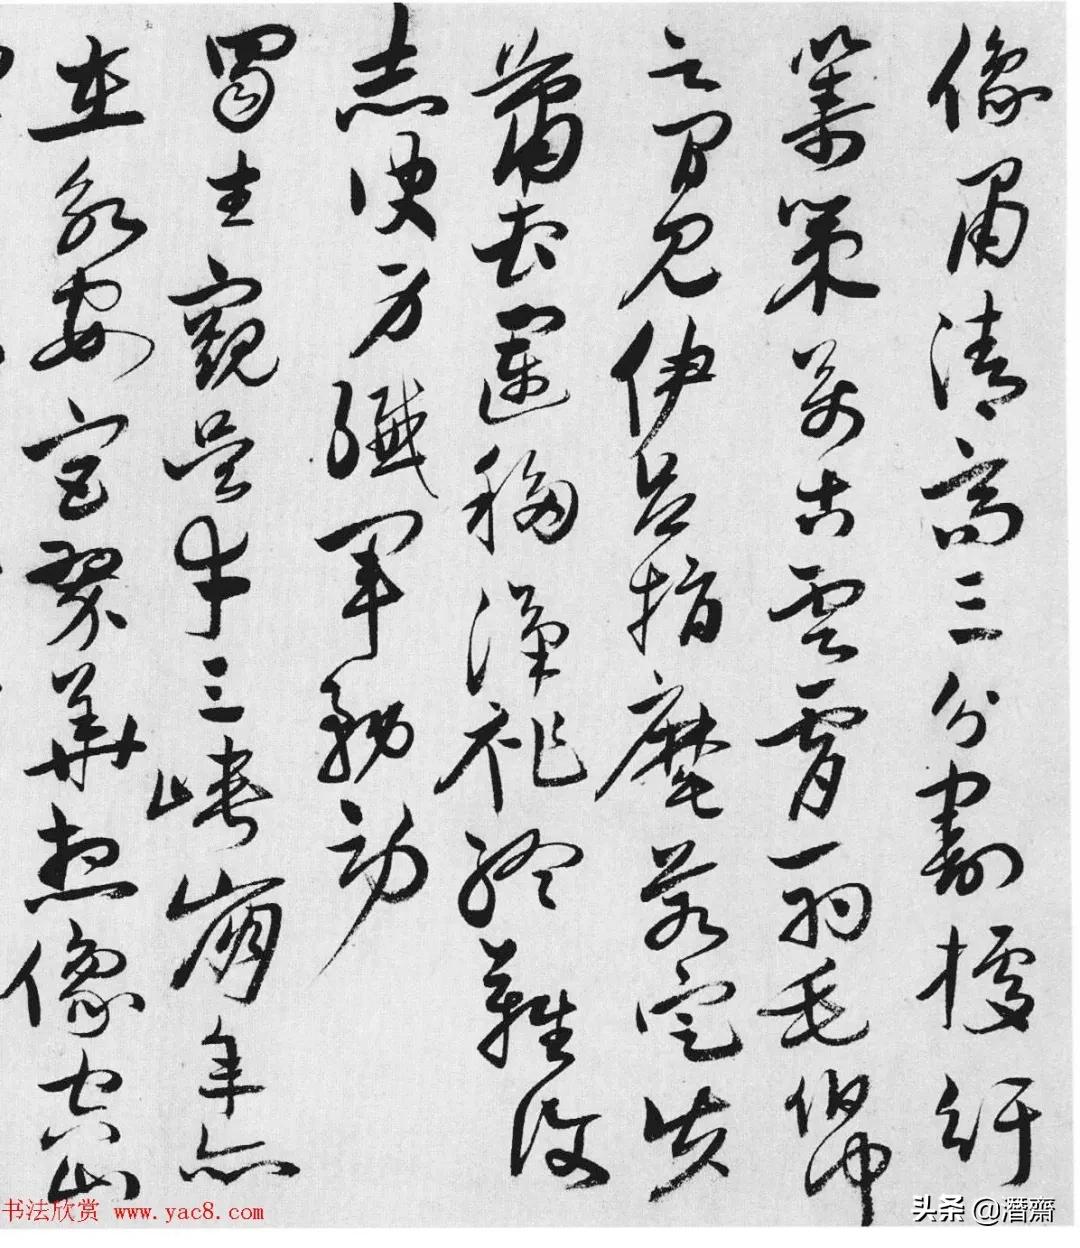 像肅清高三分割據紆
籌策萬古雲霄一羽毛伯仲
之間見伊呂指麾若定失
蕭曹運移漢祚終難復
志決身殲軍務勞
蜀主窺吳幸三峽崩年亦
在永安宮翠華想像空山
书法欣赏 www.yac8.com
头条 @潛齋